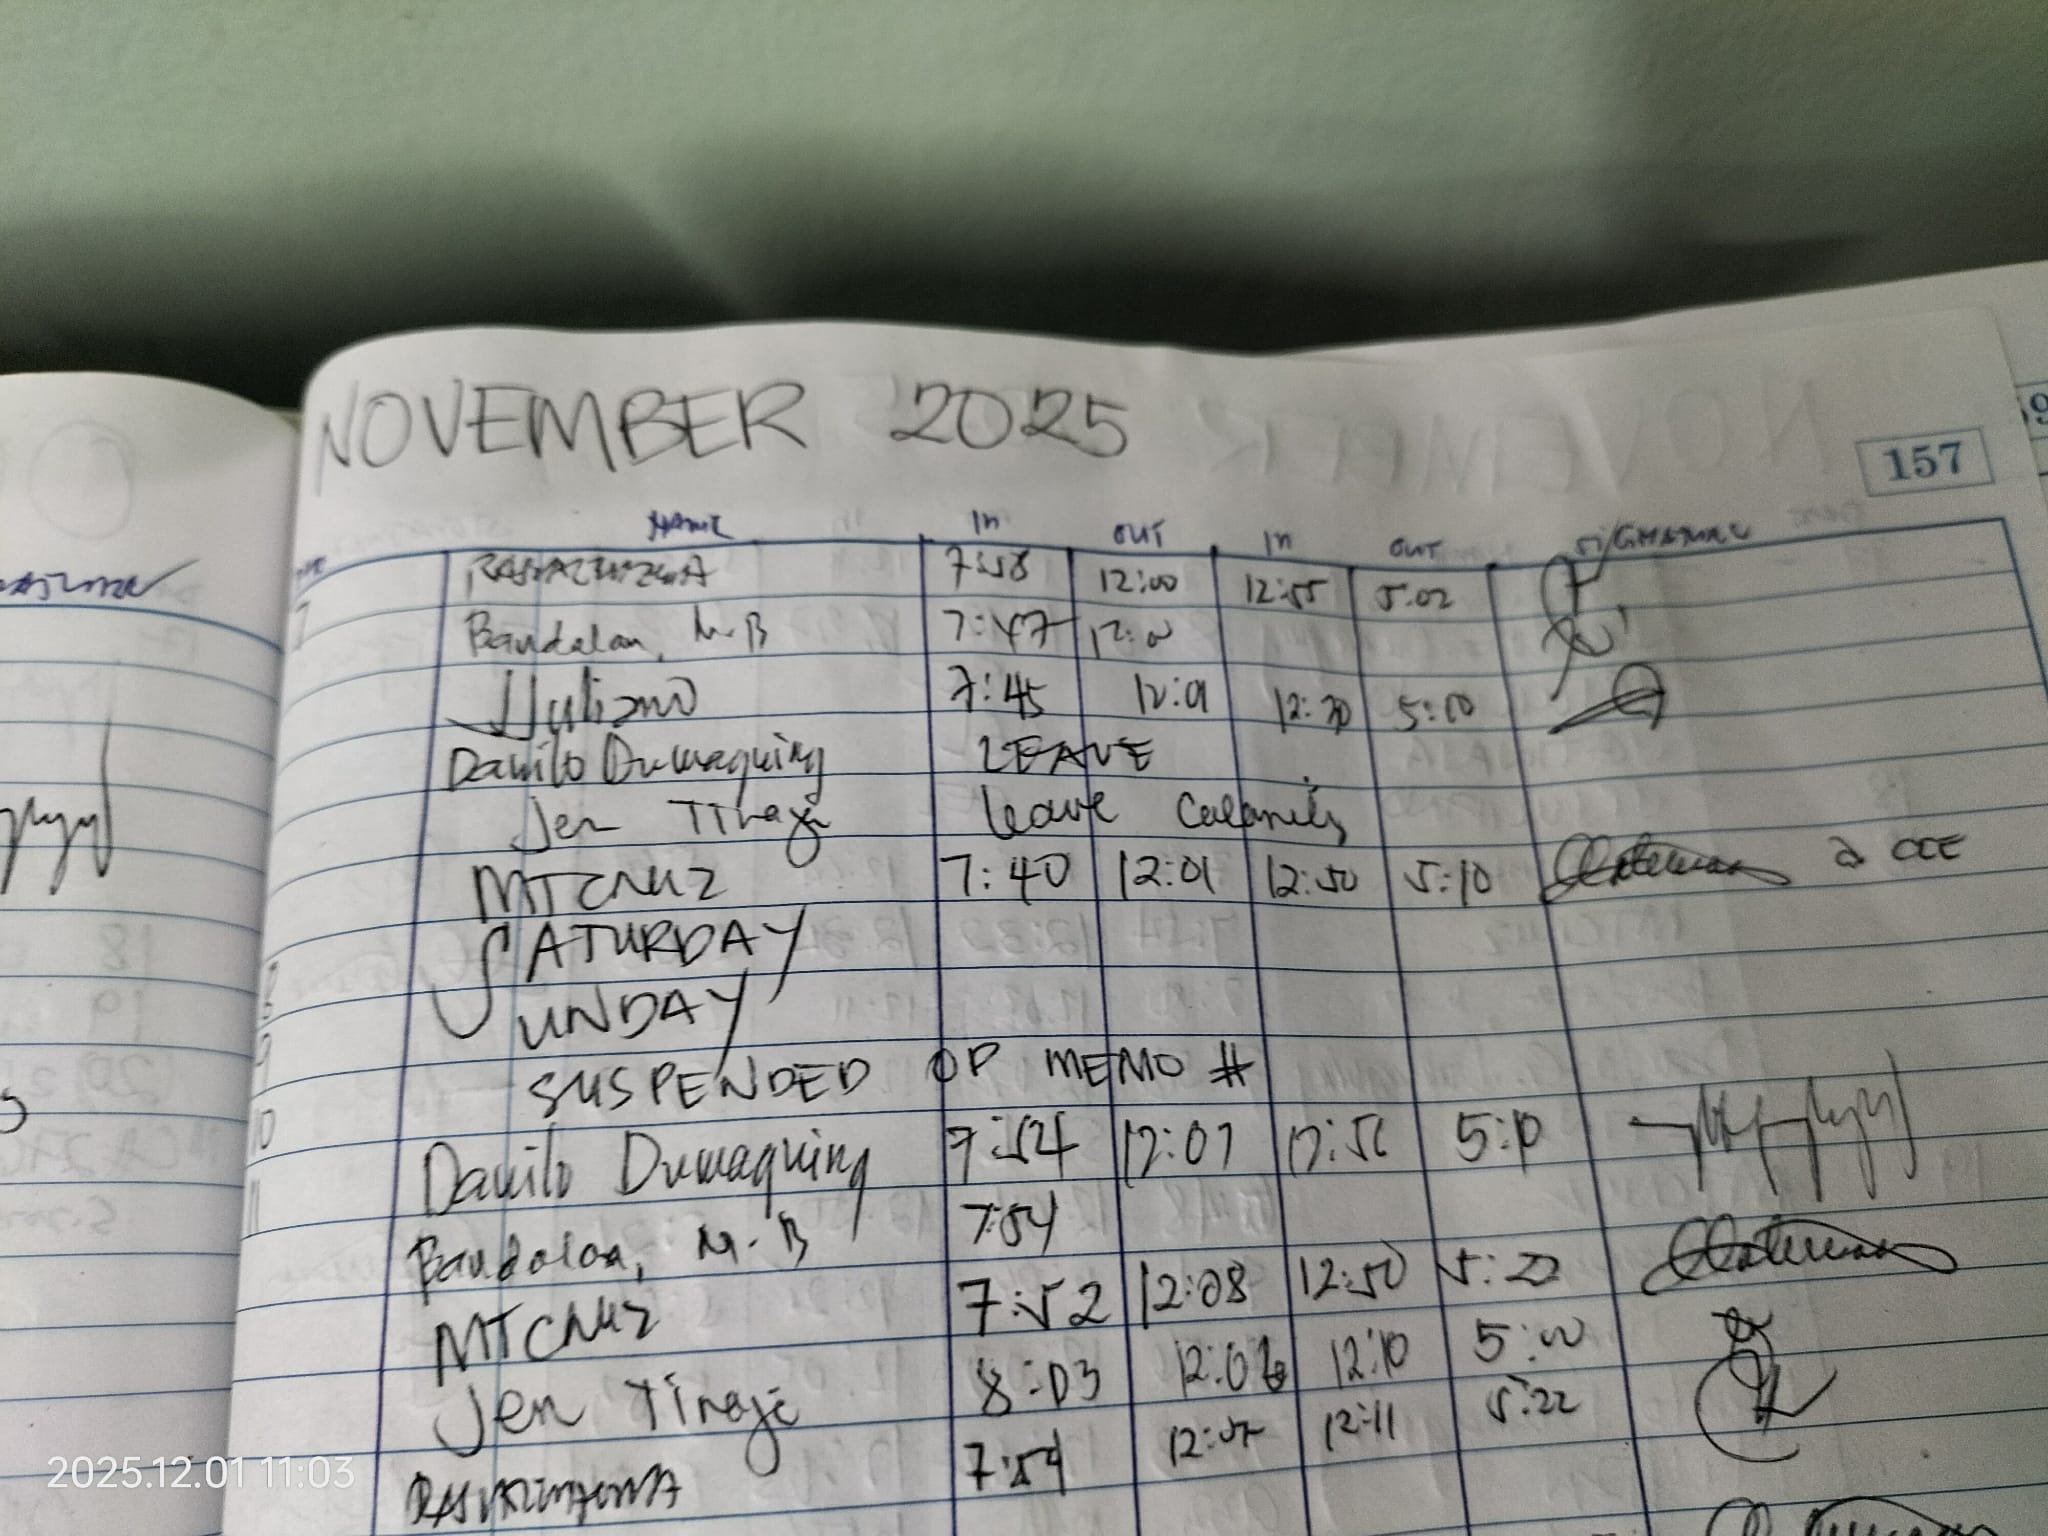 NOVEMBER 2025
157
NAME In OUT In OUT SIGNATURE
7 7:58 12:00 12:55 5:02
Bandalan, M.B 7:47 12:00
JJuliano 7:45 12:01 12:30 5:10
Danilo Dumaquing LEAVE
Jen Tinaje leave Calamity
MTCRUZ 7:40 12:01 12:50 5:10 CCE
8 SATURDAY
9 SUNDAY
10 SUSPENDED OP MEMO #
11 Danilo Dumaquing 7:54 12:07 12:56 5:10
Bandalan, M.B 7:54
MTCRUZ 7:52 12:08 12:50 5:22
Jen Tinaje 8:03 12:10 5:00
7:54 12:07 12:11 5:22
2025.12.01 11:03